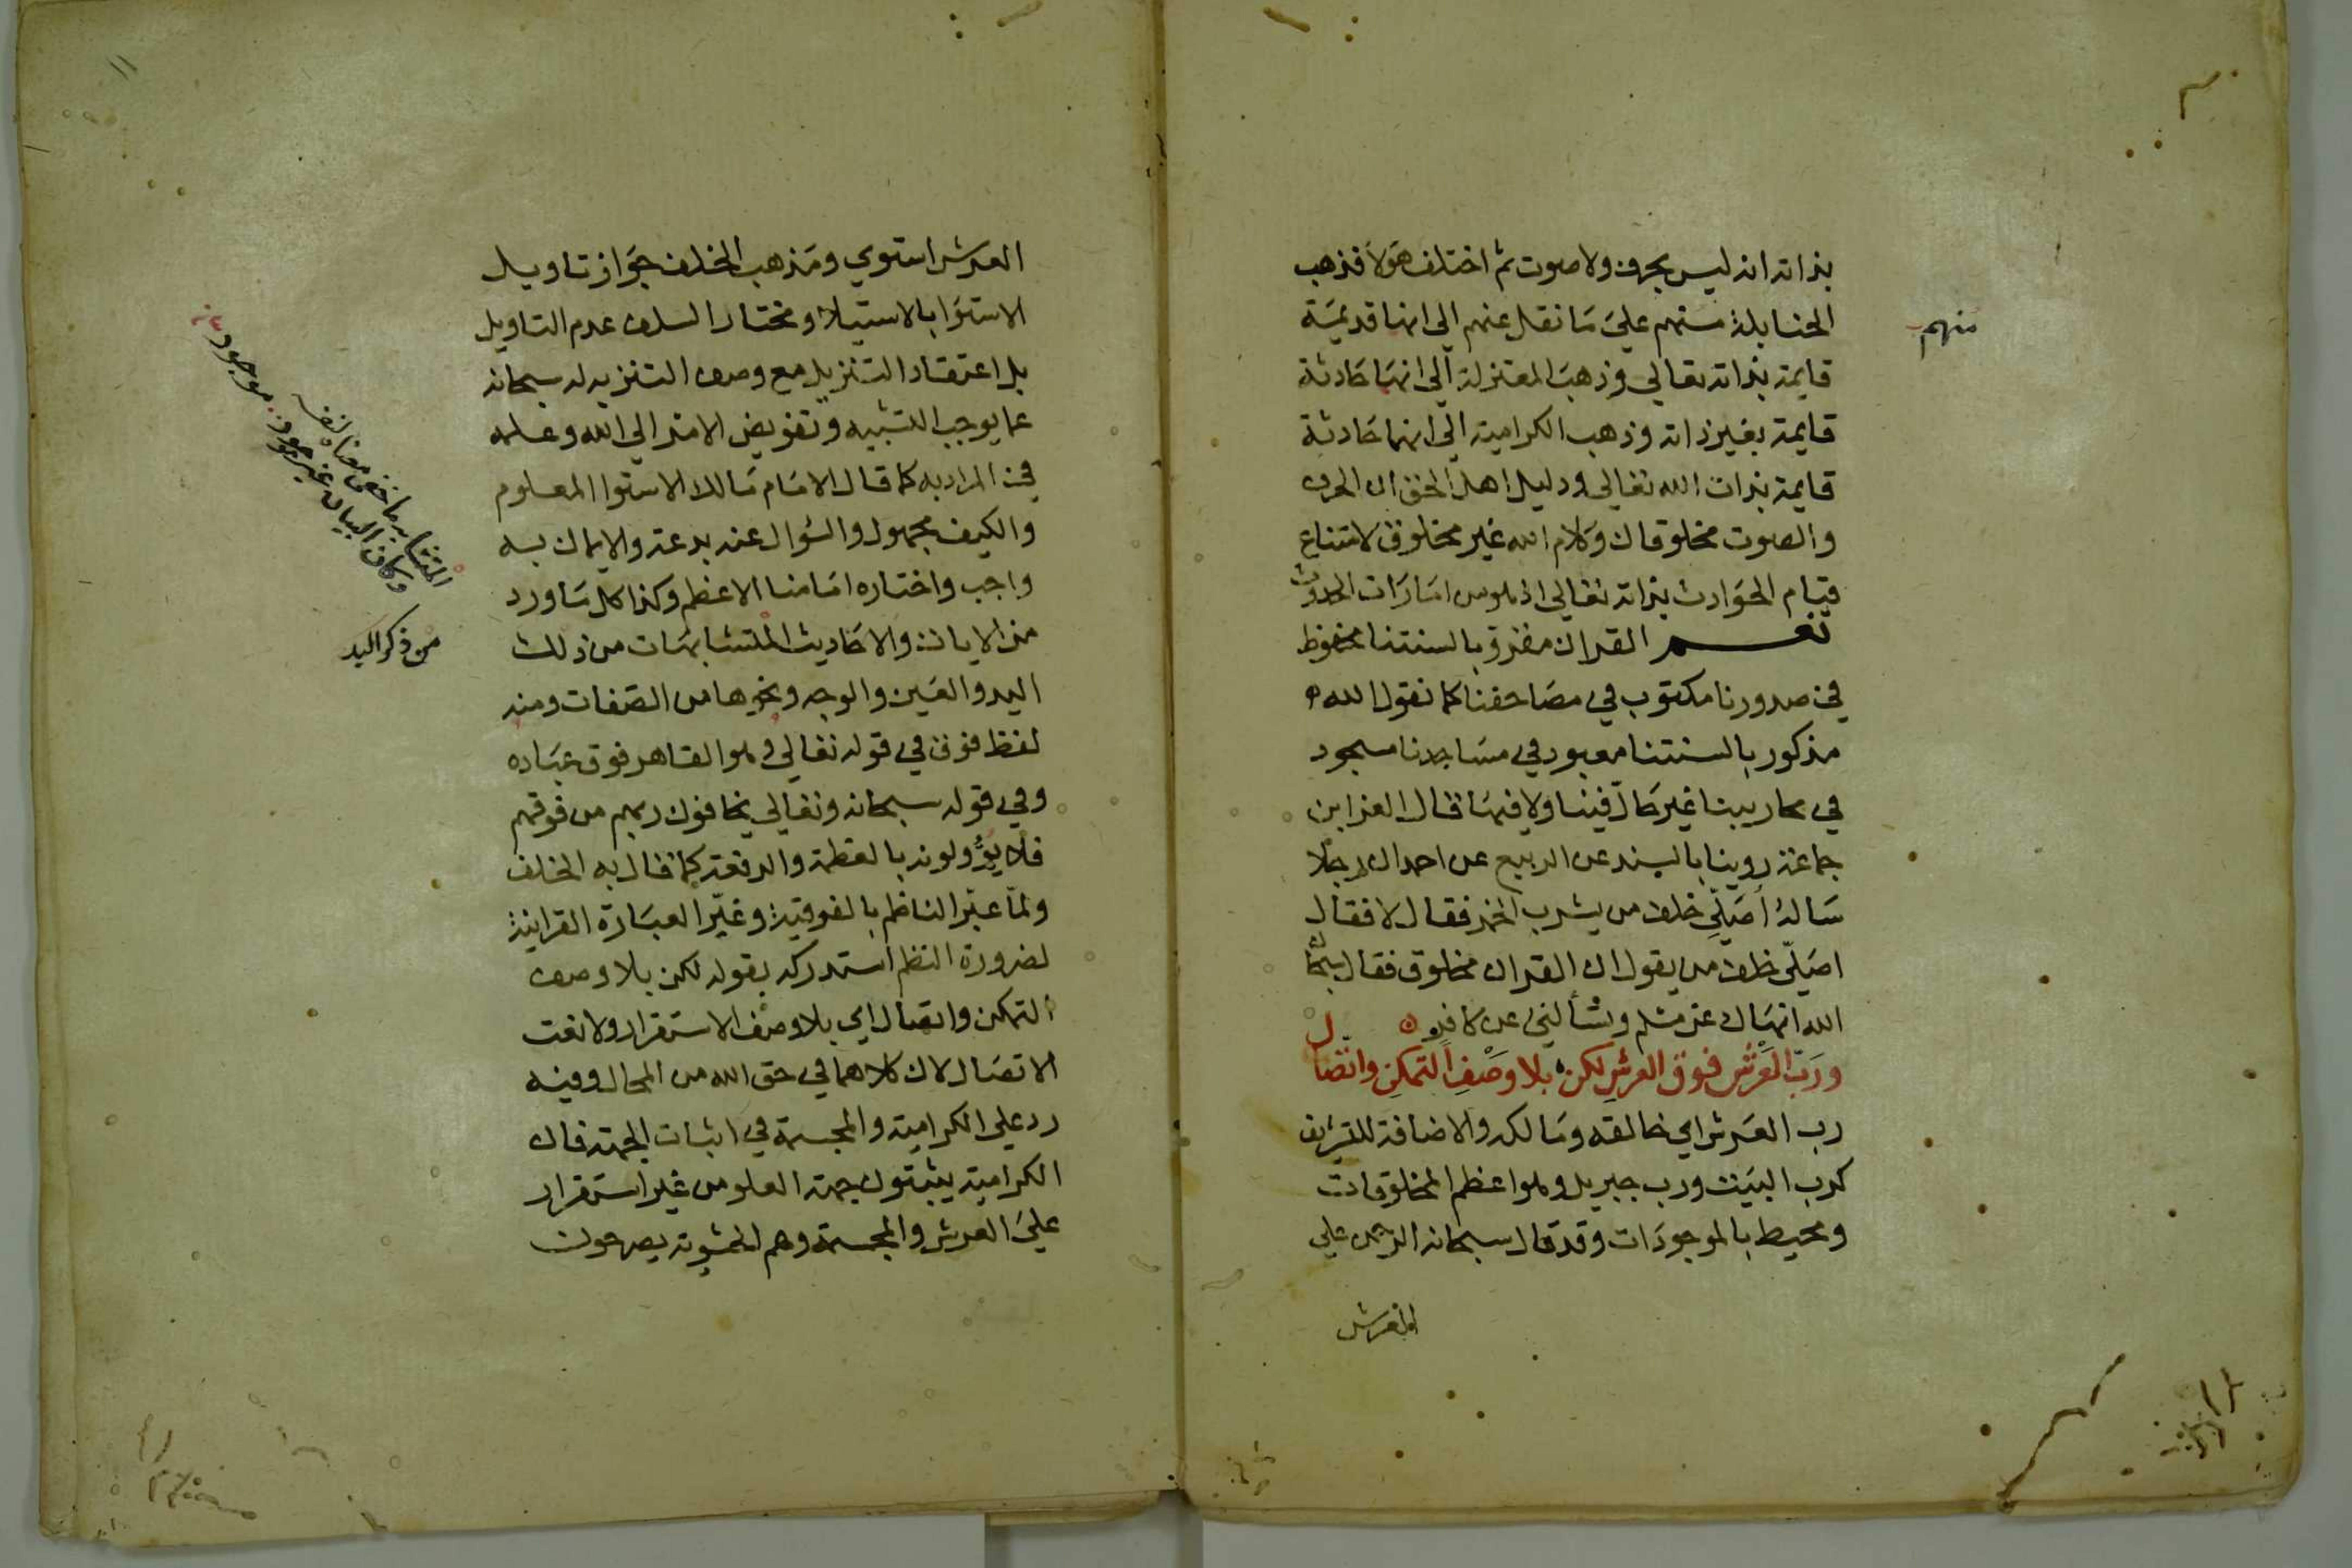 بذاته انه ليس بحرف ولا صوت ثم اختلف هؤلا فذهب
الحنابلة منهم علي ما نقل عنهم الي انها قديمة
منهم
قايمة بذاته تعالي وذهب المعتزلة الي انها حادثة
قايمة بغير ذاته وذهب الكرامية الي انها حادثة
قايمة بذات الله تعالي ودليل اهل الحق ان الحرف
والصوت مخلوقان وكلام الله غير مخلوق لامتناع
قيام الحوادث بذاته تعالي اذ هو من امارات الحدوث
نعم القران مقروّ بالسنتنا محفوظ
في صدورنا مكتوب في مصاحفنا كما نقول الله
مذكور بالسنتنا معبود في مساجدنا مسجود
في محاريبنا غير حالّ فينا ولا فيها قال العز ابن
جماعة روينا بالسند عن الربيع عن احمد ان رجلا
ساله أصلّي خلف من يشرب الخمر فقال لا فقال
اصلّي خلف من يقول ان القران مخلوق فقال سبحان
الله انهاك عن مسلم وتسألني عن كافر
وربّ العرش فوق العرش لكن بلا وصف التمكن واتصال
رب العرش اي خالقه ومالكه والاضافة للتشريف
كرب البيت ورب جبريل وهو اعظم المخلوقات
ومحيط بالموجودات وقد قال سبحانه الرحمن علي
العرش
العرش استوي ومذهب الخلف جواز تاويل
الاستوا بالاستيلا ومختار السلف عدم التاويل
بل اعتقاد التنزيل مع وصف التنزيه له سبحانه
عما يوجب التشبيه وتفويض الامر الي الله وعلمه
في المراد به كما قال الامام مالك الاستوا المعلوم
والكيف مجهول والسؤال عنه بدعة والايمان به
واجب واختاره امامنا الاعظم وكذا كل ما ورد
من الايات والاحاديث المتشابهات من ذلك
اليد والعين والوجه ونحوها من الصفات ومنه
لفظ فوق في قوله تعالي وهو القاهر فوق عباده
وفي قوله سبحانه وتعالي يخافون ربهم من فوقهم
فلا يؤولونه بالعظمة والرفعة كما قال به الخلف
ولمّا عبّر الناظم بالفوقية وغيّر العبارة القرانية
لضرورة النظم استدركه بقوله لكن بلا وصف
التمكن واتصال اي بلا وصف الاستقرار ولا نعت
الاتصال لان كلاهما في حق الله من المحال وفيه
رد علي الكرامية والمجسمة في اثبات الجهة فان
الكرامية يثبتون جهة العلو من غير استقرار
علي العرش والمجسمة وهم الحشوية يصرحون
المتشابه ما خفي معناه
وكان البيان غير موجود
من ذكر اليد